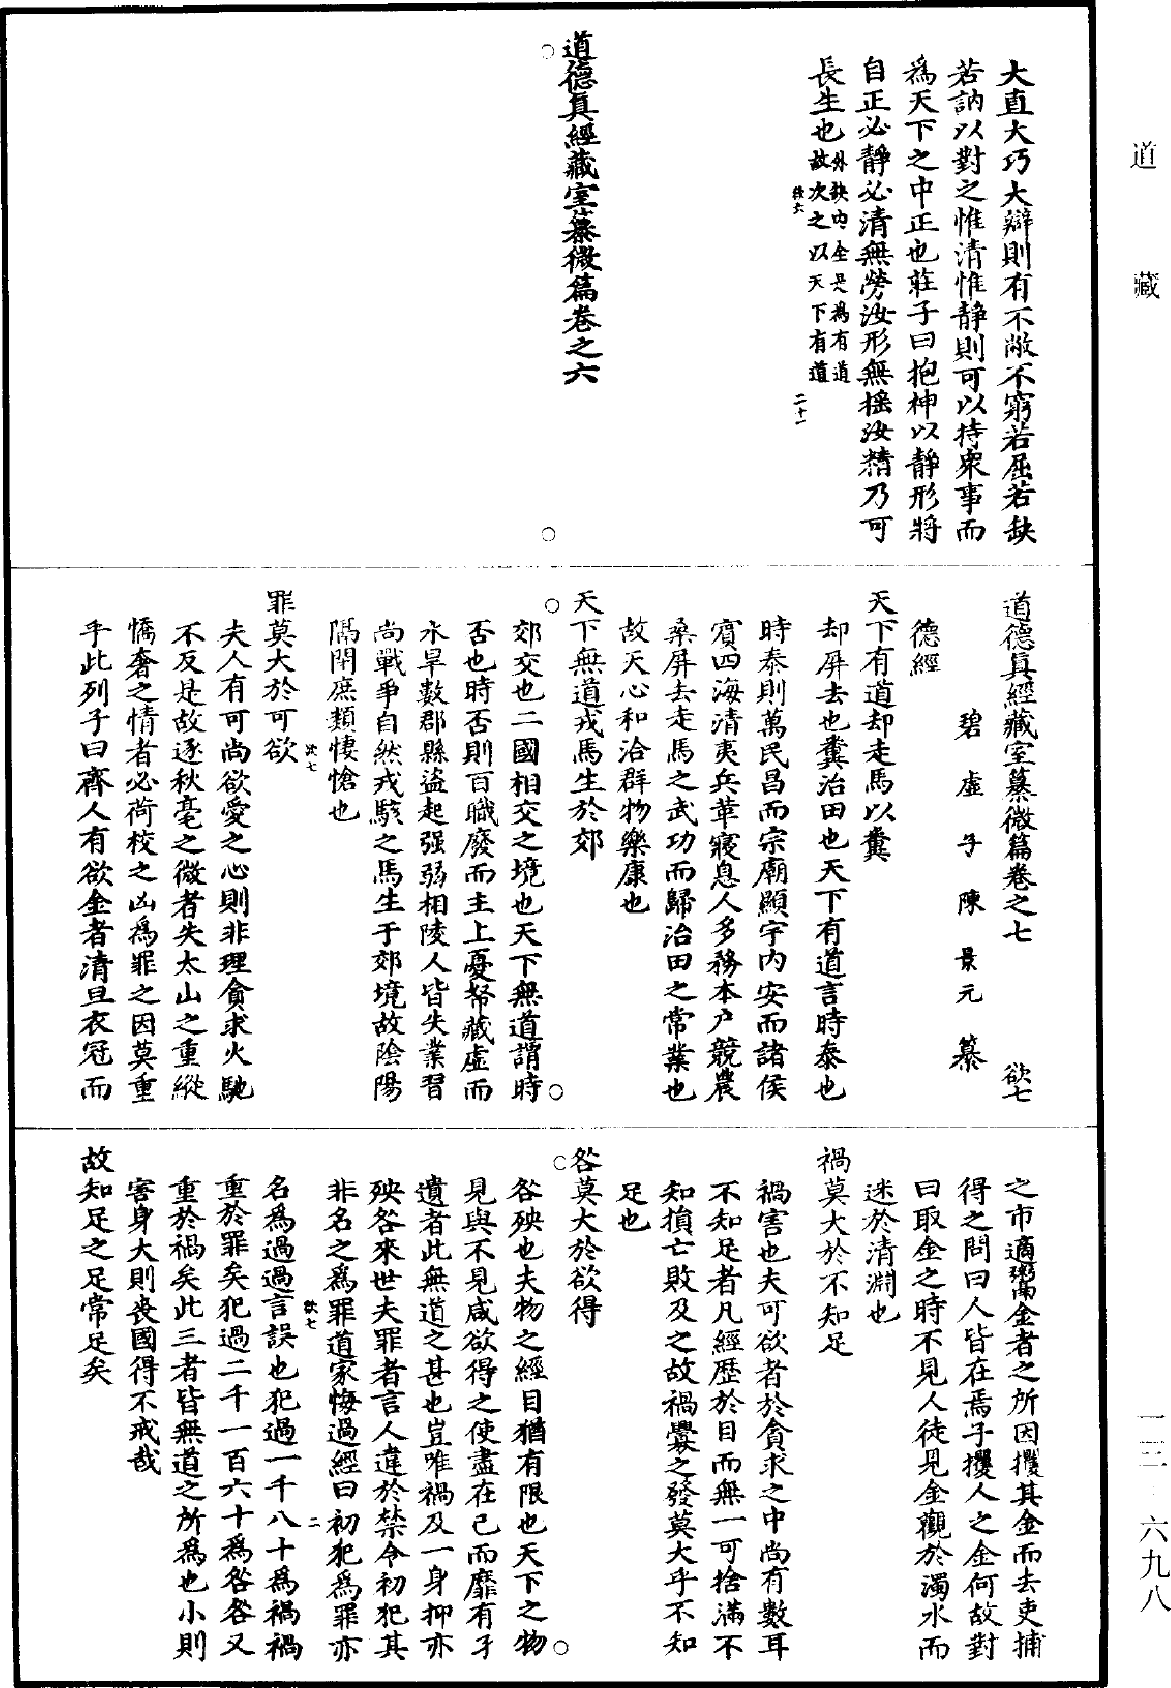 道藏
大直大巧大辯則有不敝不窮若屈若缺
若訥以對之惟清惟靜則可以持衆事而
爲天下之中正也莊子曰抱神以靜形將
自正必靜必清無勞汝形無搖汝精乃可
長生也外缺內全是爲有道
故次之以天下有道
欲六 二十一
道德眞經藏室纂微篇卷之六
道德眞經藏室纂微篇卷之七 欲七
碧虛子陳景元纂
德經
天下有道却走馬以糞
却屏去也糞治田也天下有道言時泰也
時泰則萬民昌而宗廟顯宇內安而諸侯
賓四海清夷兵革寢息人多務本戶競農
桑屏去走馬之武功而歸治田之常業也
故天心和洽群物樂康也
天下無道戎馬生於郊
郊交也二國相交之境也天下無道謂時
否也時否則百職廢而主上憂帑藏虛而
水旱數郡縣盜起强弱相陵人皆失業習
尚戰爭自然戎駭之馬生于郊境故陰陽
隔閉庶類悽愴也
欲七
罪莫大於可欲
夫人有可尚欲愛之心則非理貪求火馳
不反是故逐秋毫之微者失太山之重縱
憍奢之情者必荷校之凶爲罪之因莫重
乎此列子曰齊人有欲金者清旦衣冠而
之市適鬻金者之所因攫其金而去吏捕
得之問曰人皆在焉子攫人之金何故對
曰取金之時不見人徒見金觀於濁水而
迷於清淵也
禍莫大於不知足
禍害也夫可欲者於貪求之中尚有數耳
不知足者凡經歷於目而無一可捨滿不
知損亡敗及之故禍釁之發莫大乎不知
足也
咎莫大於欲得
咎殃也夫物之經目猶有限也天下之物
見與不見咸欲得之使盡在己而靡有孑
遺者此無道之甚也豈唯禍及一身抑亦
殃咎來世夫罪者言人違於禁令初犯其
非名之爲罪道家悔過經曰初犯爲罪亦
欲七 二
名爲過過言誤也犯過一千八十爲禍禍
重於罪矣犯過二千一百六十爲咎咎又
重於禍矣此三者皆無道之所爲也小則
害身大則喪國得不戒哉
故知足之足常足矣
一三・六九八